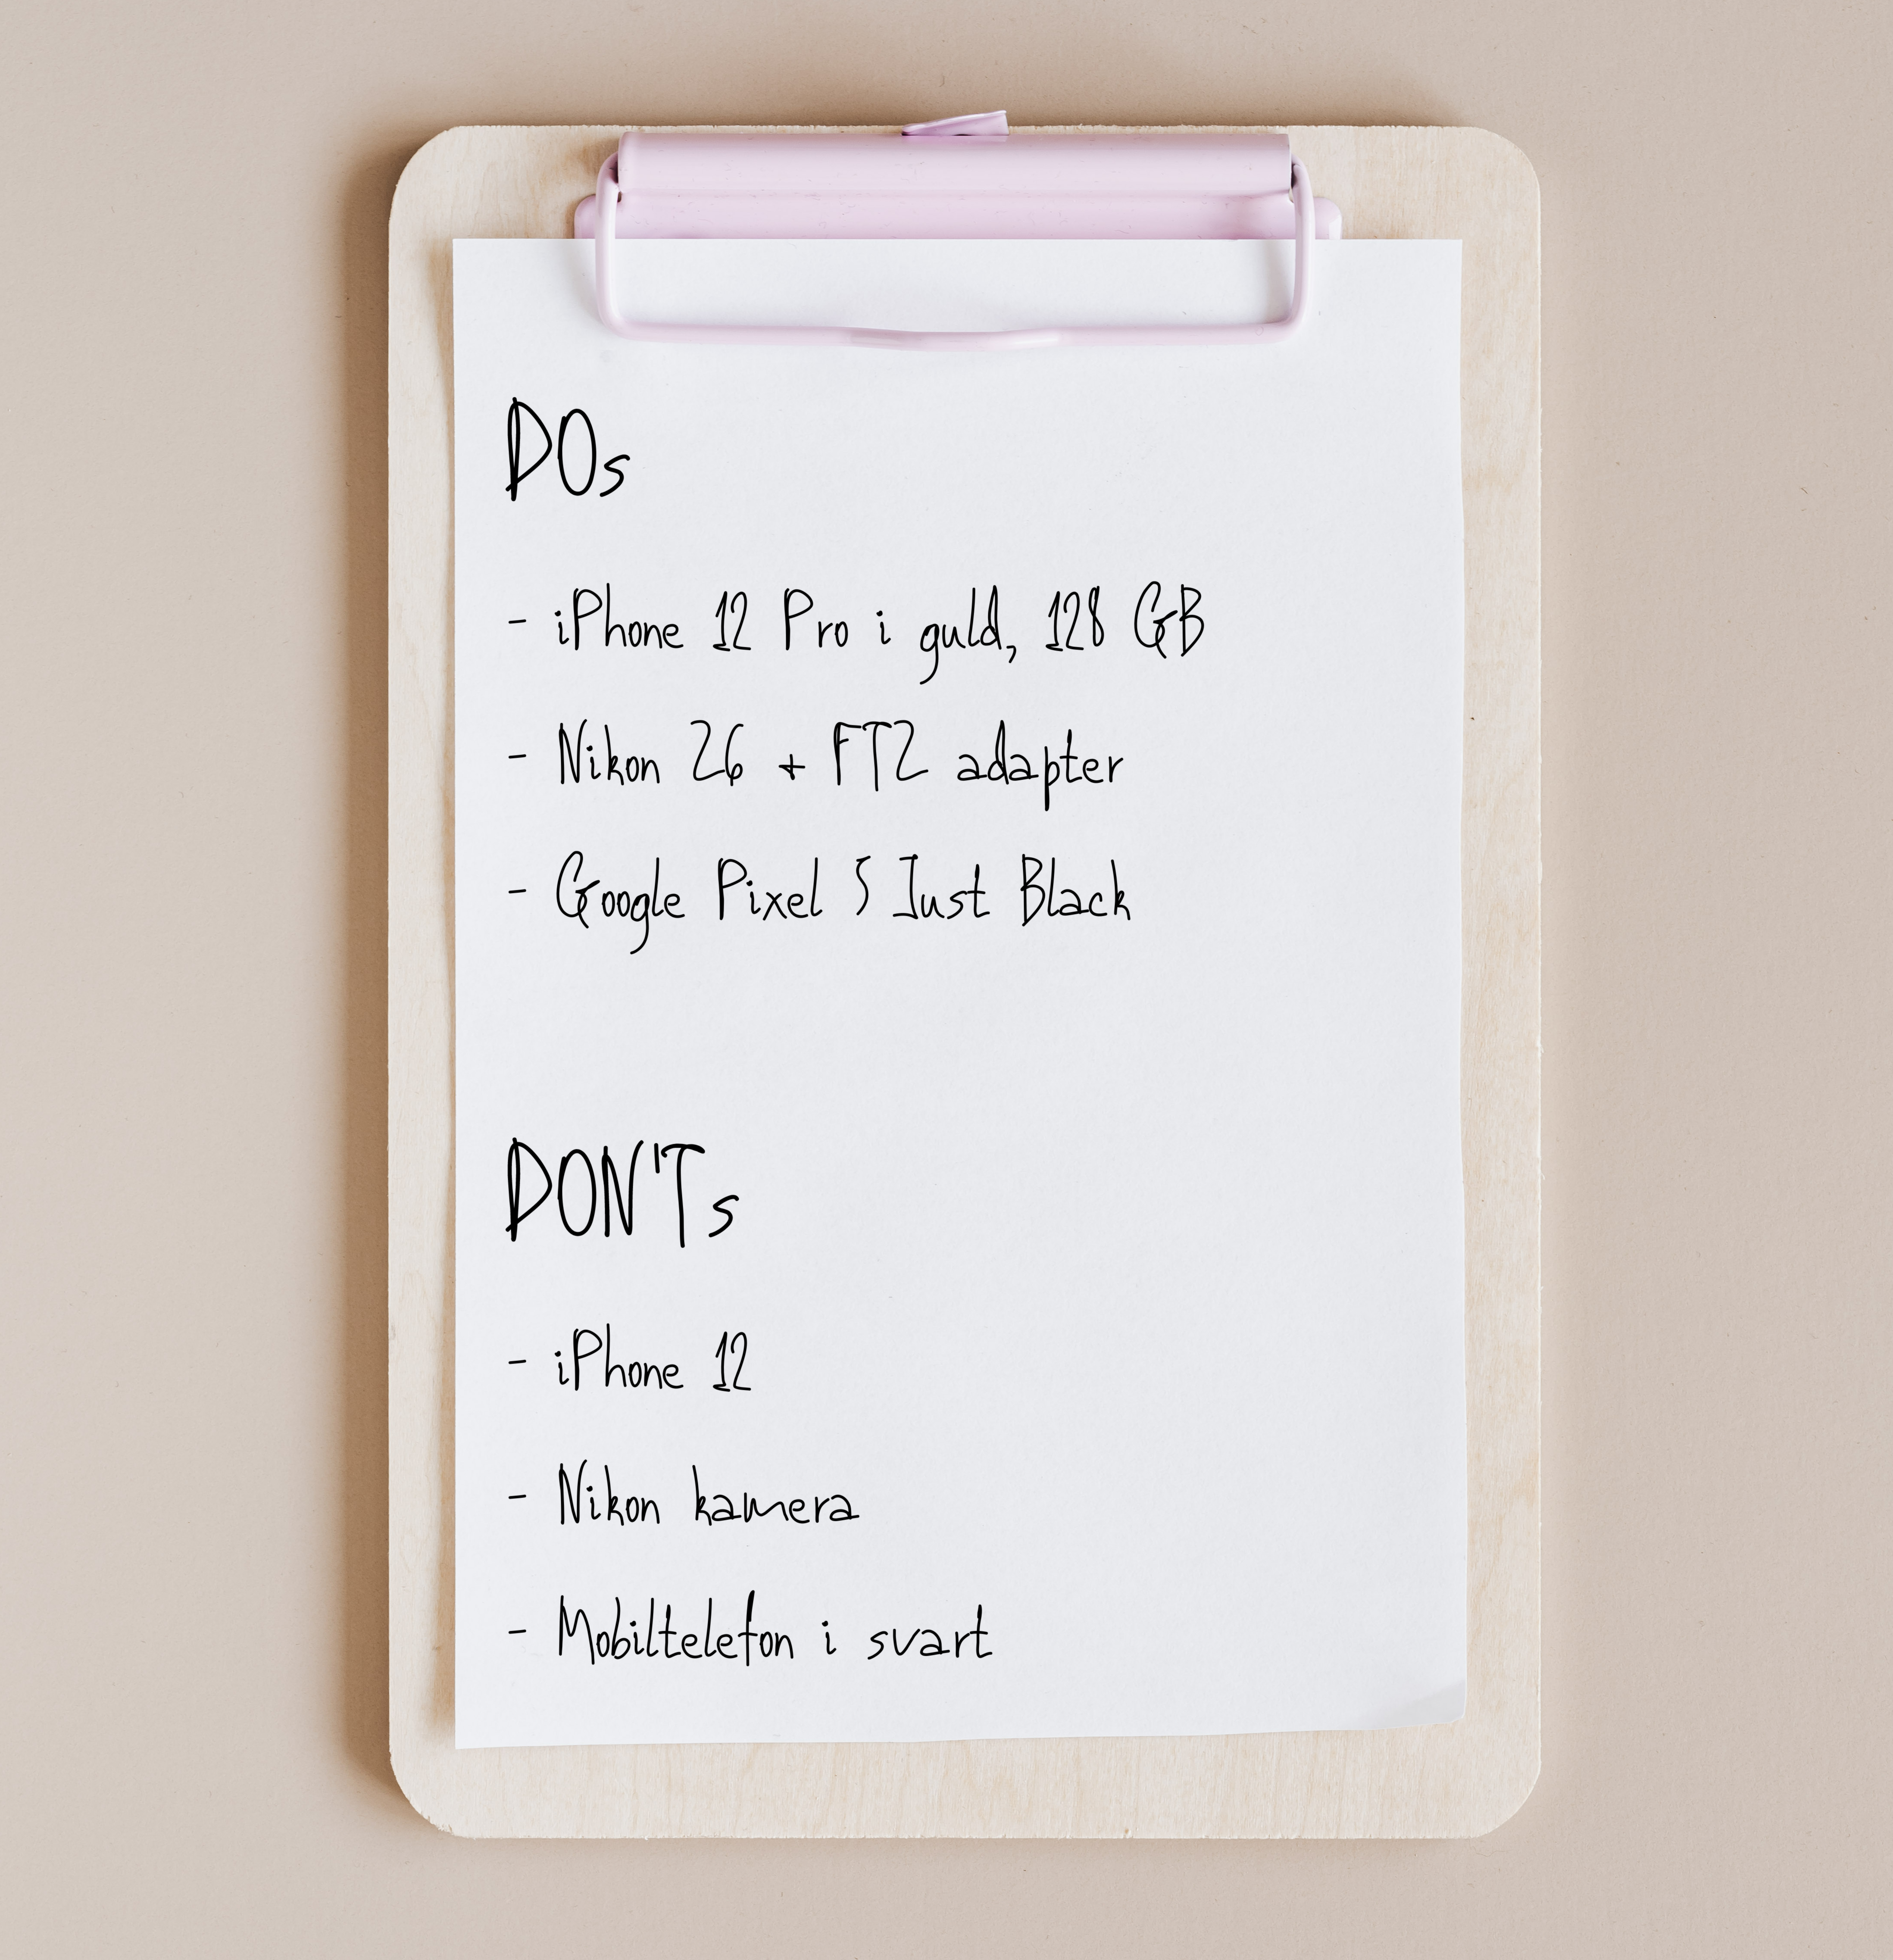 DOs
- iPhone 12 Pro i guld, 128 GB
- Nikon Z6 + FTZ adapter
- Google Pixel 5 Just Black
DON'Ts
- iPhone 12
- Nikon kamera
- Mobiltelefon i svart